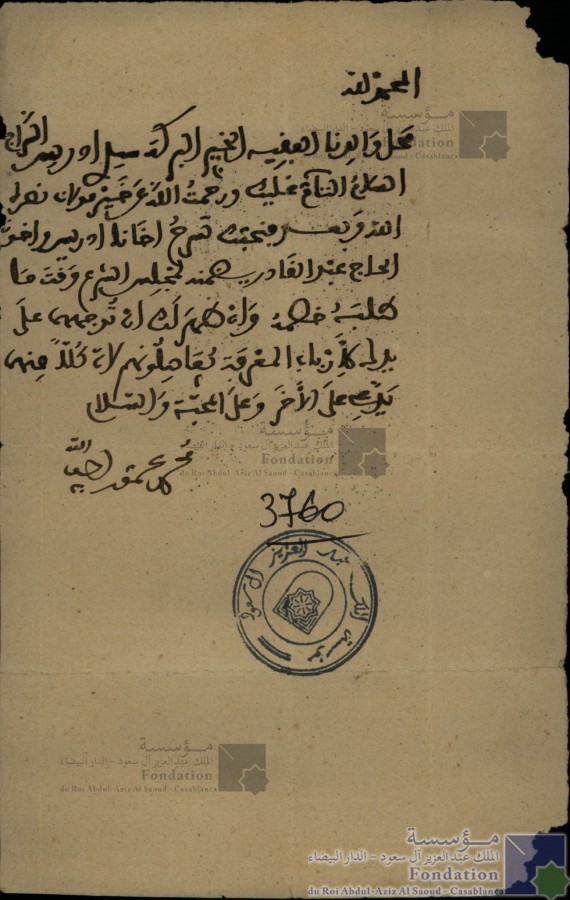 الحمد لله
محل والدنا الفقيه الخير البركة سيدي ادريس السراج
السلام التام عليك ورحمت الله عن خير مولانا نصره
الله وبعد فنحبك تسرح اخانا ادريس واخوه
الحاج عبد القادر يهمند لمجلس الشرع وقت ما
طلبه خصمه وان ظهر لك ان توجههم على
يد ارباب المعرفة يفاصلونهم لان كلا منهم
يدعي على الآخر وعلى المحبة والسلام
محمد
الله
3760
مؤسسة الملك عبد العزيز آل سعود
مؤسسة
الملك عبد العزيز آل سعود - الدار البيضاء
Fondation
du Roi Abdul-Aziz Al Saoud - Casablanca
مؤسسة
الملك عبد العزيز آل سعود - الدار البيضاء
Fondation
du Roi Abdul-Aziz Al Saoud - Casablanca
مؤسسة
الملك عبد العزيز آل سعود - الدار البيضاء
Fondation
du Roi Abdul-Aziz Al Saoud - Casablanca
مؤسسة
الملك عبد العزيز آل سعود - الدار البيضاء
Fondation
du Roi Abdul-Aziz Al Saoud - Casablanca